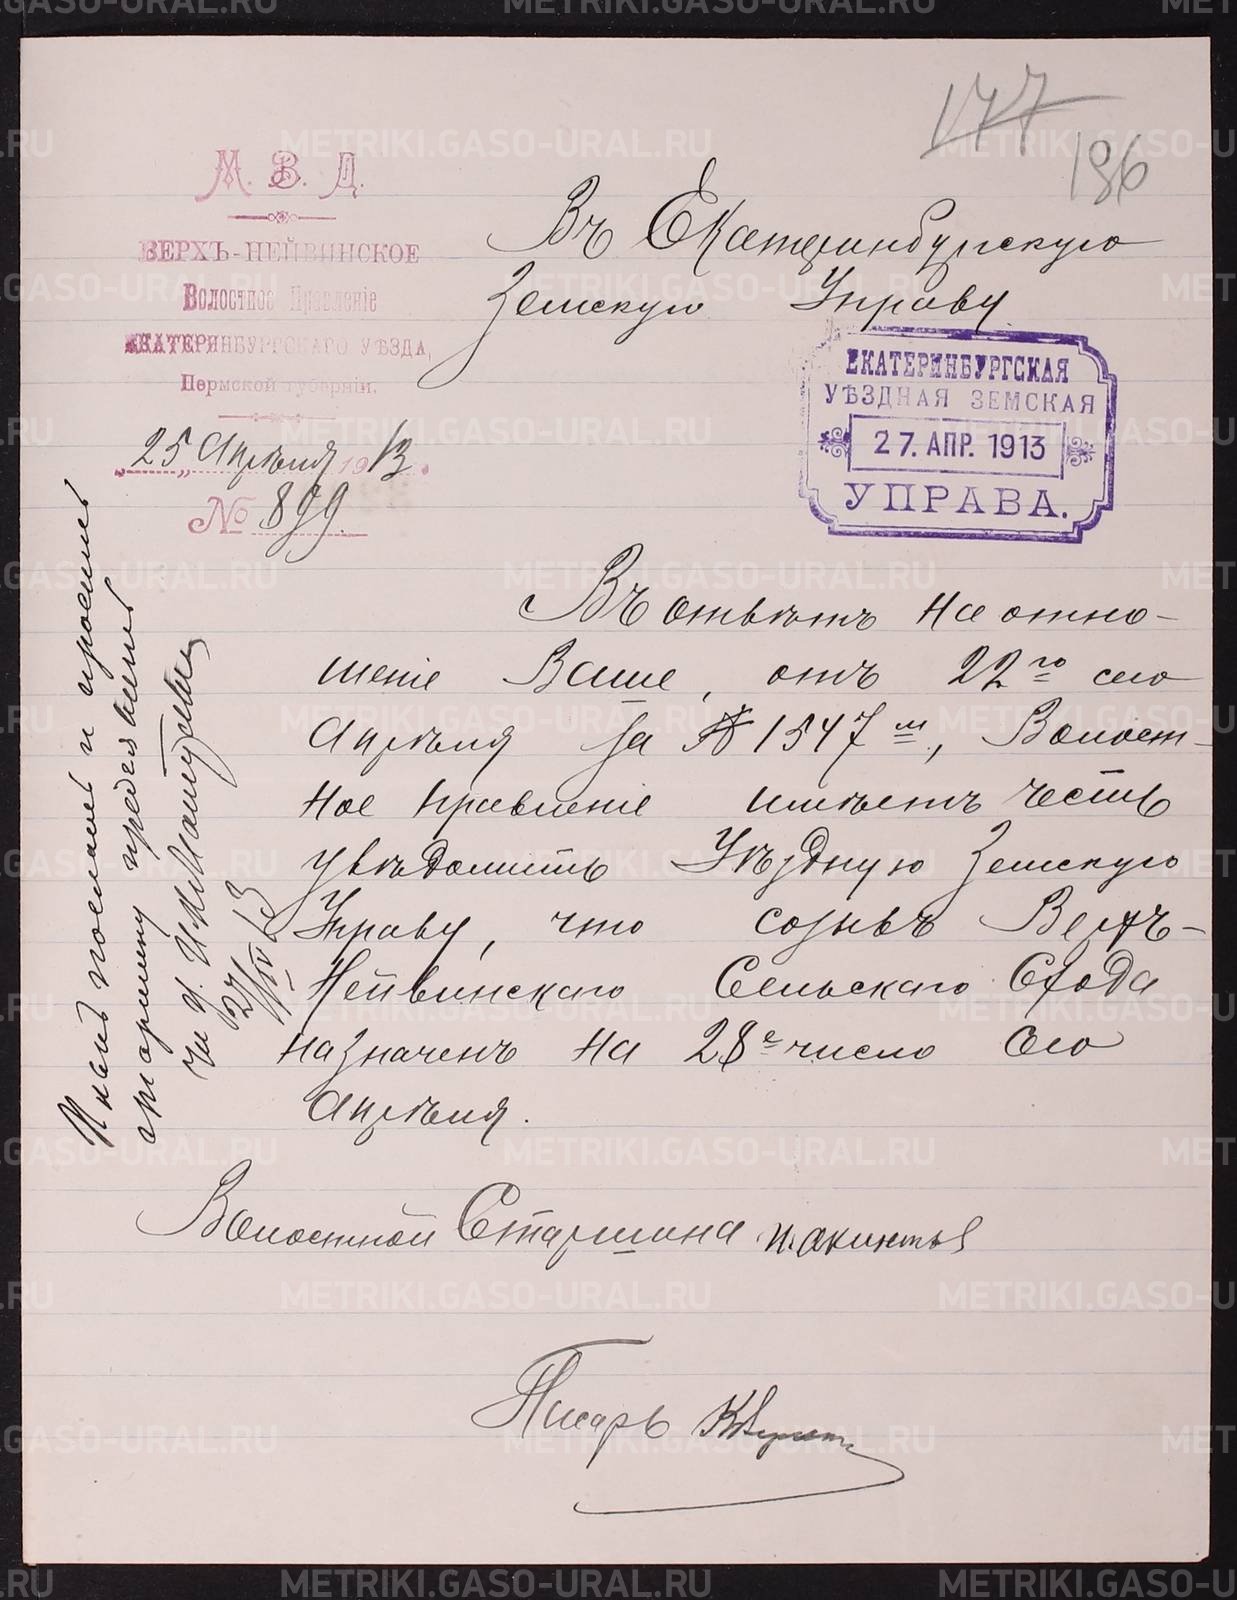 177
186
М. В. Д.
ВЕРХЪ-НЕЙВИНСКОЕ
Волостное Правленіе
ЕКАТЕРИНБУРГСКАГО УѢЗДА,
Пермской губерніи.
„25" Апрѣля 1913.
№ 899.
Въ Екатеринбургскую
Земскую Управу.
ЕКАТЕРИНБУРГСКАЯ
УѢЗДНАЯ ЗЕМСКАЯ
27. АПР. 1913
УПРАВА.
Въ отвѣтъ на отно-
шеніе Ваше, отъ 22го сего
Апрѣля за № 1547м, Волост-
ное Правленіе имѣетъ честь
увѣдомить Уѣздную Земскую
Управу, что созывъ Верхъ-
Нейвинскаго Сельскаго Схода
назначенъ на 28е число сего
Апрѣля.
Волостной Старшина
Писарь
и просит
27/IV 13
METRIKI.GASO-URAL.RU